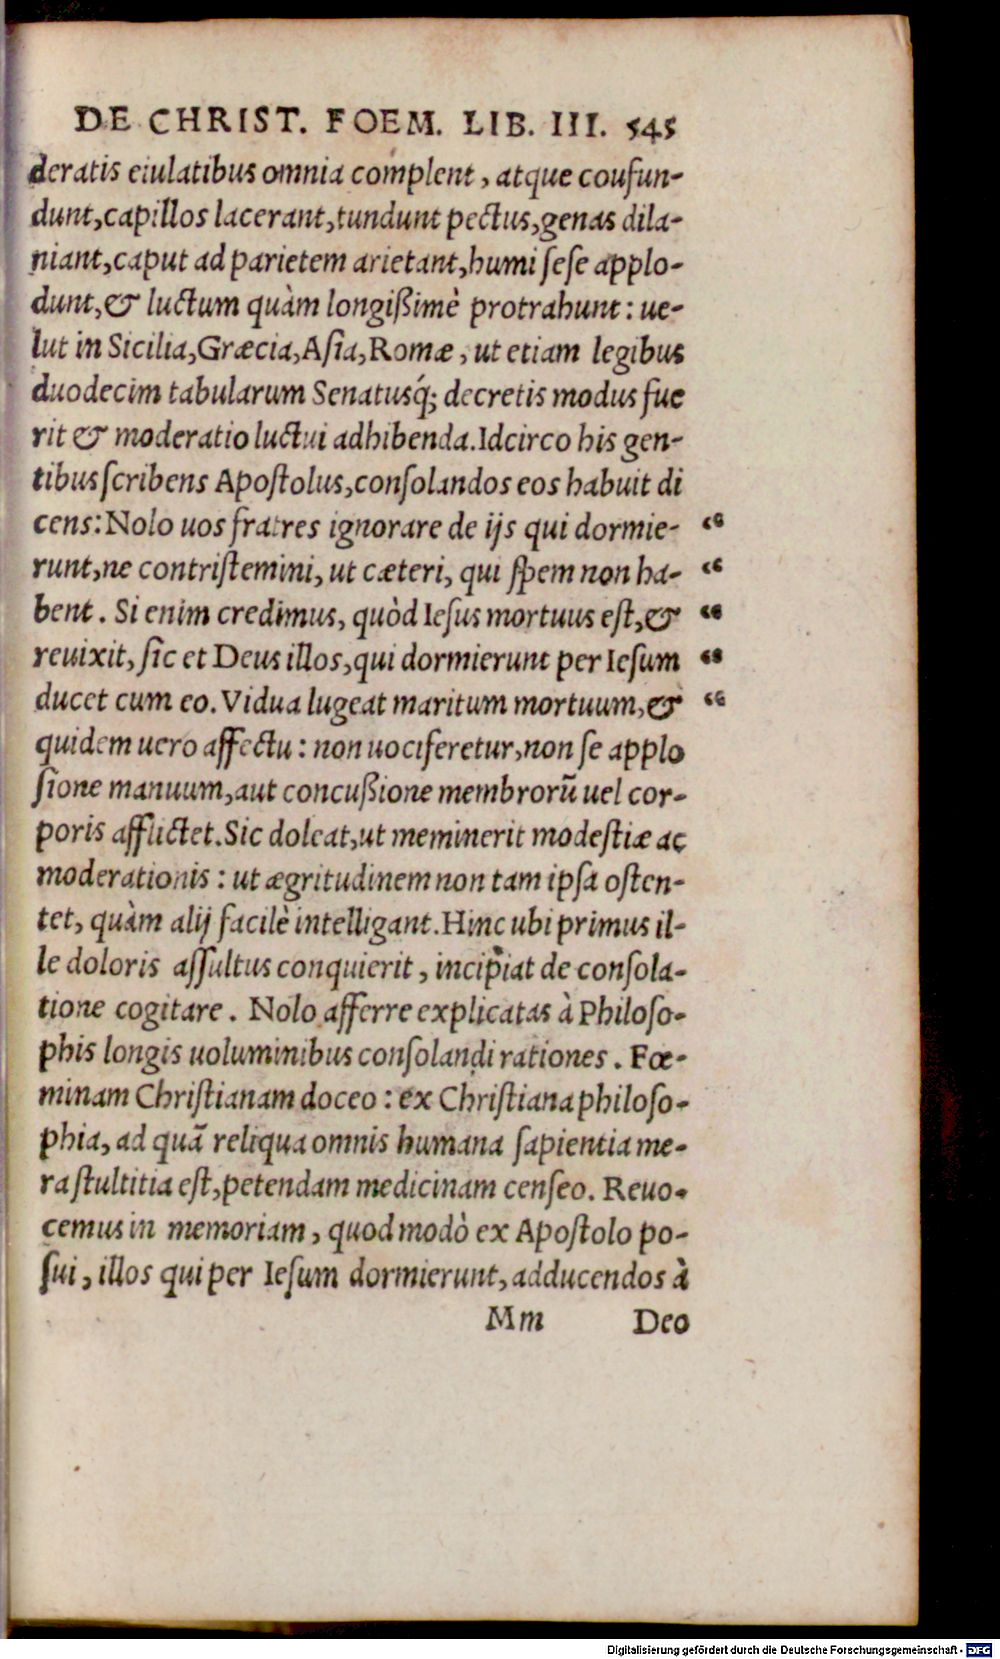 DE CHRIST. FOEM. LIB. III. 545
deratis eiulatibus omnia complent, atque coufun-
dunt, capillos lacerant, tundunt pectus, genas dila-
niant, caput ad parietem arietant, humi ſeſe applo-
dunt, & luctum quàm longißimè protrahunt: ue-
lut in Sicilia, Græcia, Aſia, Romæ, ut etiam legibus
duodecim tabularum Senatusq́; decretis modus fue
rit & moderatio luctui adhibenda. Idcirco his gen-
tibus ſcribens Apoſtolus, conſolandos eos habuit di
cens: Nolo uos fratres ignorare de ijs qui dormie- “
runt, ne contriſtemini, ut cæteri, qui ſpem non ha- “
bent. Si enim credimus, quòd Ieſus mortuus eſt, & “
reuixit, ſic et Deus illos, qui dormierunt per Ieſum “
ducet cum eo. Vidua lugeat maritum mortuum, & “
quidem uero affectu: non uociferetur, non ſe applo
ſione manuum, aut concußione membrorũ uel cor-
poris afflictet. Sic doleat, ut meminerit modeſtiæ ac
moderationis: ut ægritudinem non tam ipſa oſten-
tet, quàm alij facilè intelligant. Hinc ubi primus il-
le doloris aſſultus conquierit, incipiat de conſola-
tione cogitare. Nolo afferre explicatas à Philoſo-
phis longis uoluminibus conſolandi rationes. Fœ-
minam Chriſtianam doceo: ex Chriſtiana philoſo-
phia, ad quã reliqua omnis humana ſapientia me-
ra ſtultitia eſt, petendam medicinam cenſeo. Reuo-
cemus in memoriam, quod modò ex Apoſtolo po-
ſui, illos qui per Ieſum dormierunt, adducendos à
Mm Deo
Digitalisierung gefördert durch die Deutsche Forschungsgemeinschaft - DFG